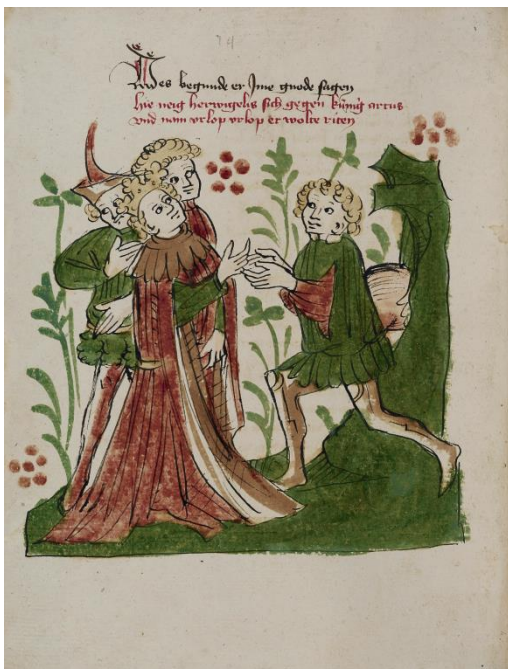 Des begunde er Ime gnode sagen
hie neig herwigelis sich gegen kúnig artus
vnd nam vrlop vrlop er wolte riten